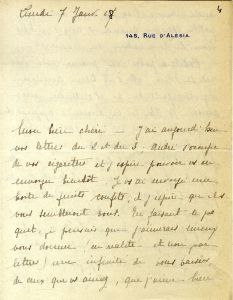 Lundi 7 Janv. 18
4
148, RUE D'ALESIA
Mon bien chéri — J'ai aujourd'hui
vos lettres du 2 et du 3. André s'occupe
de vos cigarettes et j'espère pouvoir vs en
envoyer bientôt. Je vs ai envoyé une
boîte de fruits confits, j'espère que ils
vous sembleront bons. En faisant ce pa
quet, je pensais que j'aimerais mieux
vous donner (en réalité et non par
lettres) une infinité de vous baisers
de ceux que vs aimez, que j'aime bien